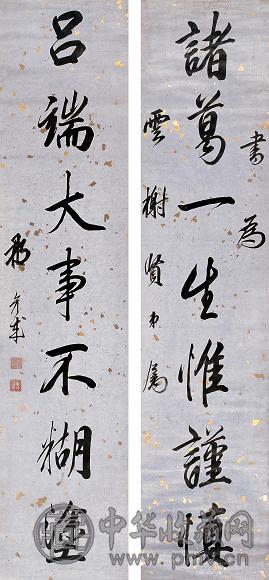 諸葛一生惟謹慎
書為
雲榭賢弟屬
吕端大事不糊塗
中华收藏网